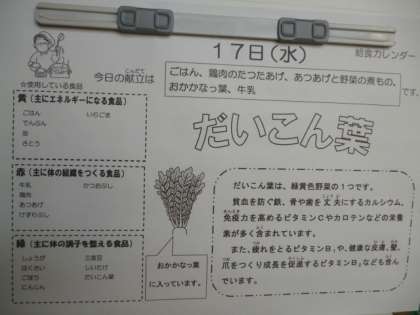 １７日（水）
給食カレンダー
今日の献立は
こんだて
ごはん、鶏肉のたつたあげ、あつあげと野菜の煮もの、
おかかなっ葉、牛乳
です。
☆使用している食品
黄（主にエネルギーになる食品）
ごはん
でんぷん
油
さとう
赤（主に体の組織をつくる食品）
牛乳 かつおぶし
鶏肉
あつあげ
けずりぶし
緑（主に体の調子を整える食品）
しょうが
はくさい しいたけ
ごぼう だいこん葉
にんじん
だいこん葉
おかかなっ葉
に入っています。
だいこん葉は、緑黄色野菜の１つです。
貧血を防ぐ鉄、骨や歯を丈夫にするカルシウム、
免疫力を高めるビタミンＣやカロテンなどの栄養
素が多く含まれています。
また、疲れをとるビタミンB₁や、健康な皮膚、髪、
爪をつくり成長を促進するビタミンB₂なども含ん
でいます。